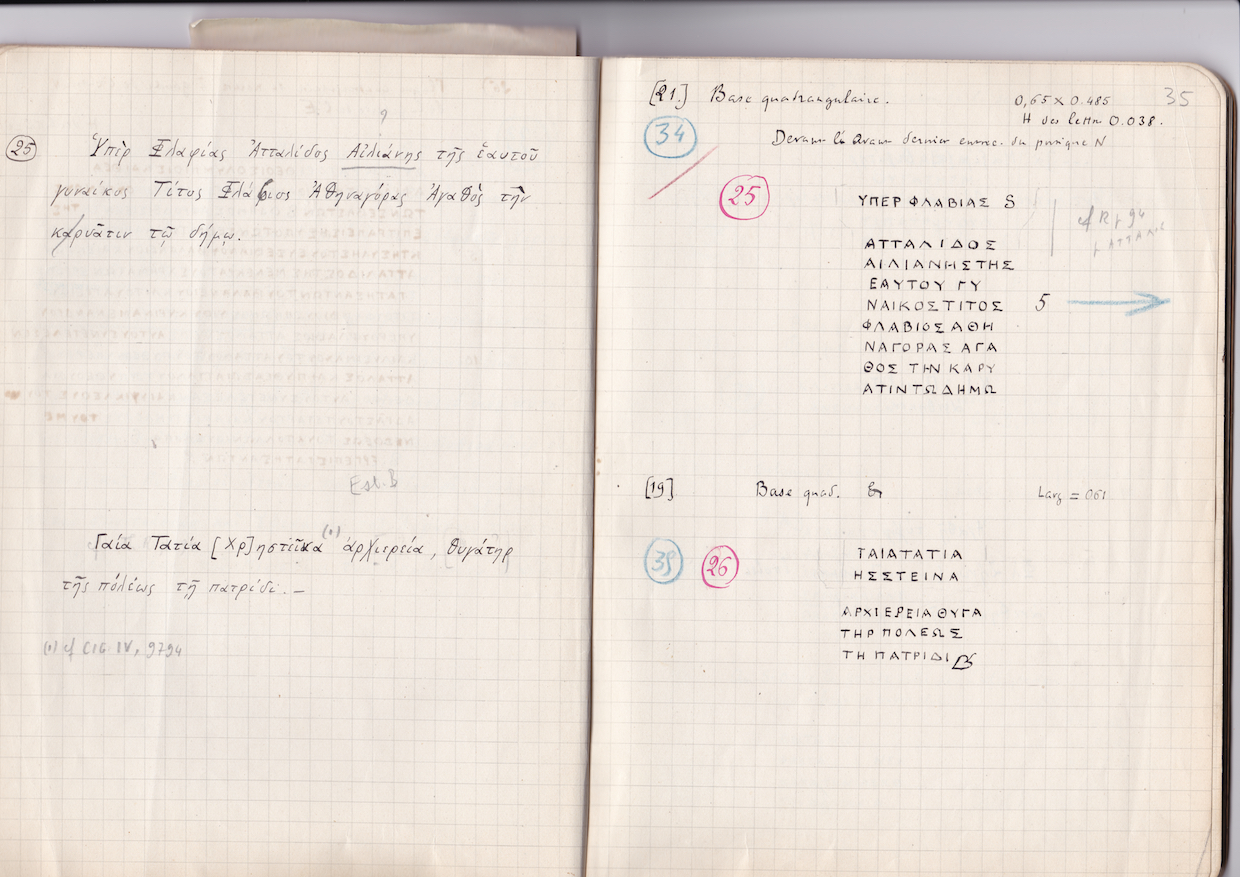 ?
25 Ὑπὲρ Φλαφίας Ἀτταλίδος Αἰλιάνης τῆς ἑαυτοῦ
γυναίκος Τίτος Φλάβιος Ἀθηναγόρας Ἀγαθὸς τὴν
καρυᾶτιν τῷ δήμῳ.
Est. B
Γαία Τατία [Χρ]ηστεῖνα (1) ἀρχιερεία, θυγάτηρ
τῆς πόλέως τῇ πατρίδι. —
(1) cf CIG IV, 9794
35
[21.] Base quadrangulaire. 0,65 x 0.485
H des lettr 0.038.
34 Devant l'avant dernier entrec. du portique N
25
ΥΠΕΡ ΦΛΑΒΙΑΣ S
cf R p 94
ΑΤΤΑΛΙΔΟΣ
ΑΙΛΙΑΝΗΣΤΗΣ
ΕΑΥΤΟΥ ΓΥ
ΝΑΙΚΟΣΤΙΤΟΣ 5
ΦΛΑΒΙΟΣ ΑΘΗ
ΝΑΓΟΡΑΣ ΑΓΑ
ΘΟΣ ΤΗΝ ΚΑΡΥ
ΑΤΙΝΤΩΔΗΜΩ
[19] Base quad. Larg = 061
35 26
ΓΑΙΑΤΑΤΙΑ
ΗΣΣΤΕΙΝΑ
ΑΡΧΙΕΡΕΙΑΘΥΓΑ
ΤΗΡ ΠΟΛΕΩΣ
ΤΗ ΠΑΤΡΙΔΙ